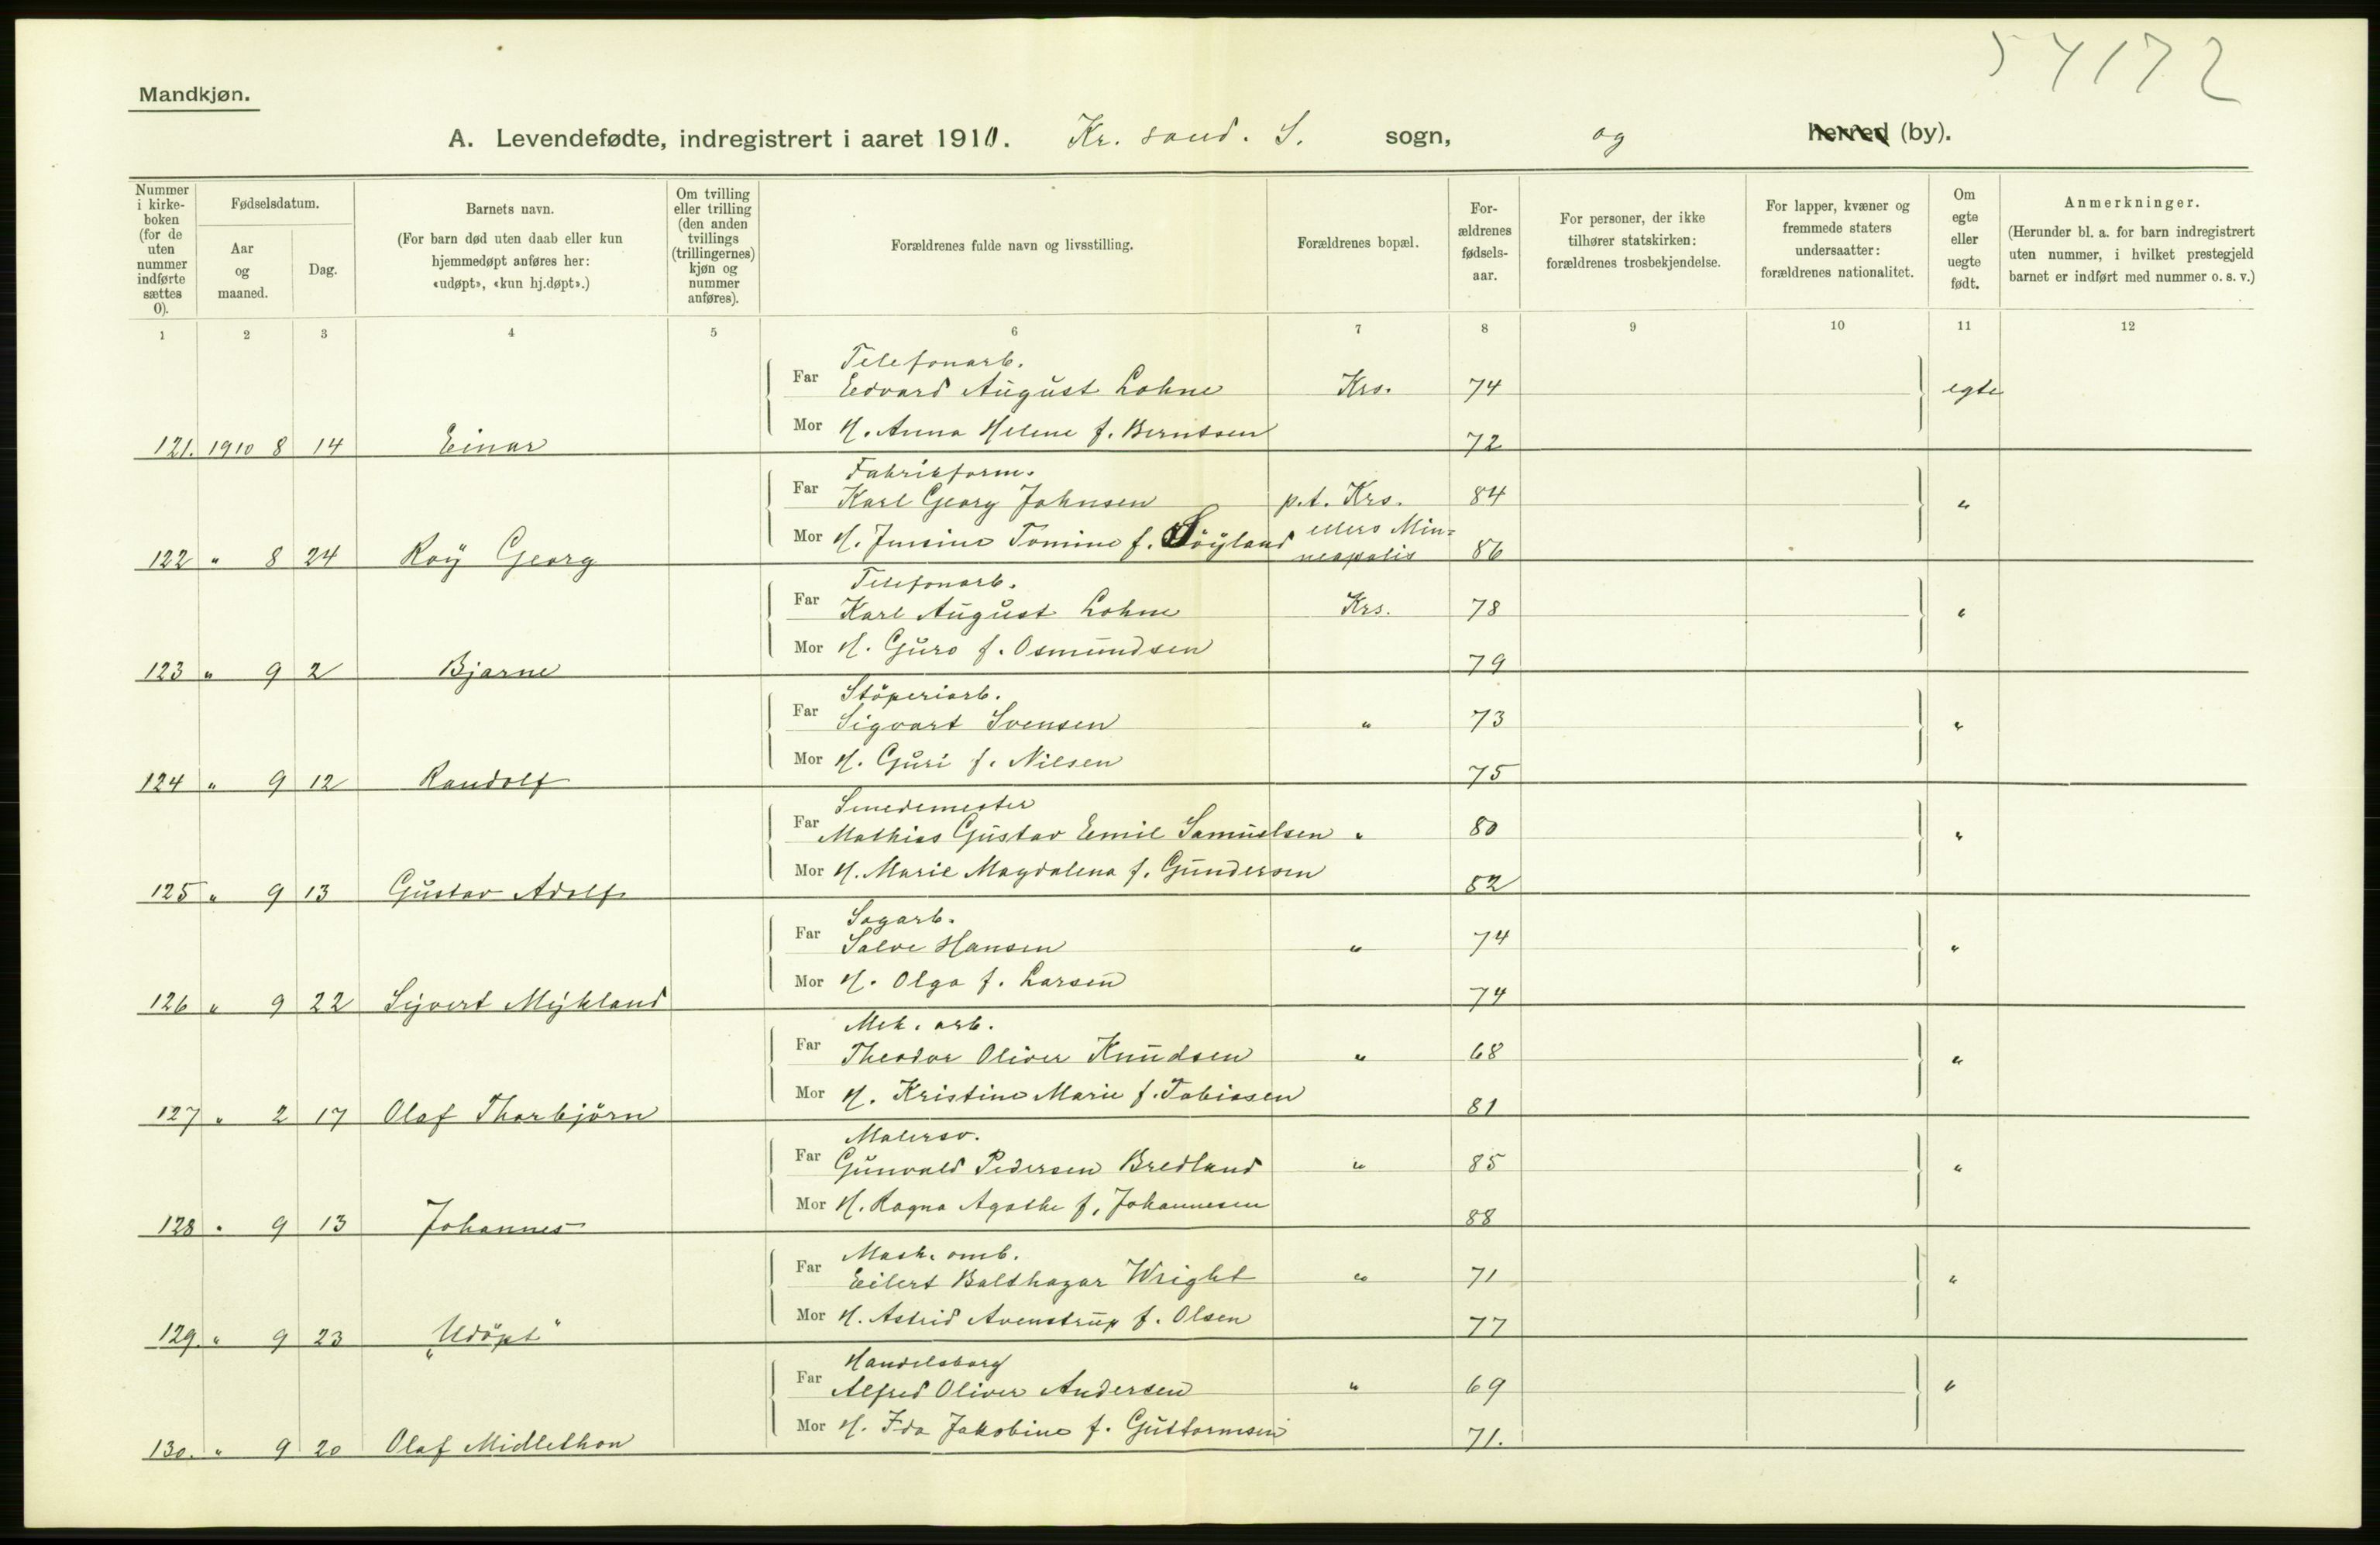 54172
Mandkjøn.
A. Levendefødte, indregistrert i aaret 1910. Kr. sand. S. sogn, og herred (by).
Nummer i kirke-boken (for de uten nummer indførte sættes 0).
Fødselsdatum.
Aar og maaned.
Dag.
Barnets navn.
(For barn død uten daab eller kun hjemmedøpt anføres her: «udøpt», «kun hj.døpt».)
Om tvilling eller trilling (den anden tvillings (trillingernes) kjøn og nummer anføres).
Forældrenes fulde navn og livsstilling.
Forældrenes bopæl.
For-ældrenes fødsels-aar.
For personer, der ikke tilhører statskirken: forældrenes trosbekjendelse.
For lapper, kvæner og fremmede staters undersaatter: forældrenes nationalitet.
Om egte eller uegte født.
Anmerkninger.
(Herunder bl. a. for barn indregistrert uten nummer, i hvilket prestegjeld barnet er indført med nummer o. s. v.)
1 2 3 4 5 6 7 8 9 10 11 12
Telefonarb.
Far Edvard August Lohne Krs. 74 egte
Mor H. Anna Helene f. Berntsen 72
121. 1910 8 14 Einar
Fabrikform.
Far Karl Georg Johnsen p.t. Krs. 84 "
Mor H. Jensine Tomine f. Söyland ellers Min=
neapolis 86
122 " 8 24 Roÿ Georg
Telefonarb.
Far Karl August Lohne Krs. 78 "
Mor H. Guro f. Osmundsen 79
123 " 9 2 Bjarne
Stöperiarb.
Far Sigvart Svensen " 73 "
Mor H. Guri f. Nilsen 75
124 " 9 12 Randolf
Smedemester
Far Mathias Gustav Emil Samuelsen " 80 "
Mor H. Marie Magdalena f. Gundersen 82
125 " 9 13 Gustav Adolf
Sagarb.
Far Salve Hansen " 74 "
Mor H. Olga f. Larsen 74
126 " 9 22 Sijvert Mÿkland
Mek. arb.
Far Theodor Oliver Knudsen " 68 "
Mor H. Kristine Marie f. Tobiasen 81
127 " 2 17 Olaf Thorbjörn
Malersv.
Far Gunvald Pedersen Bredland " 85 "
Mor H. Ragna Agathe f. Johannesen 88
128 " 9 13 Johannes
Mask. omb.
Far Eilert Balthazar Wright " 71 "
Mor H. Astrid Avenstrup f. Olsen 77
129. " 9 23 „Udöpt"
Handelsborg
Far Alfred Oliver Andersen " 69 "
Mor H. Ida Jakobine f. Guttormsen 71.
130. " 9 20 Olaf Midlethon